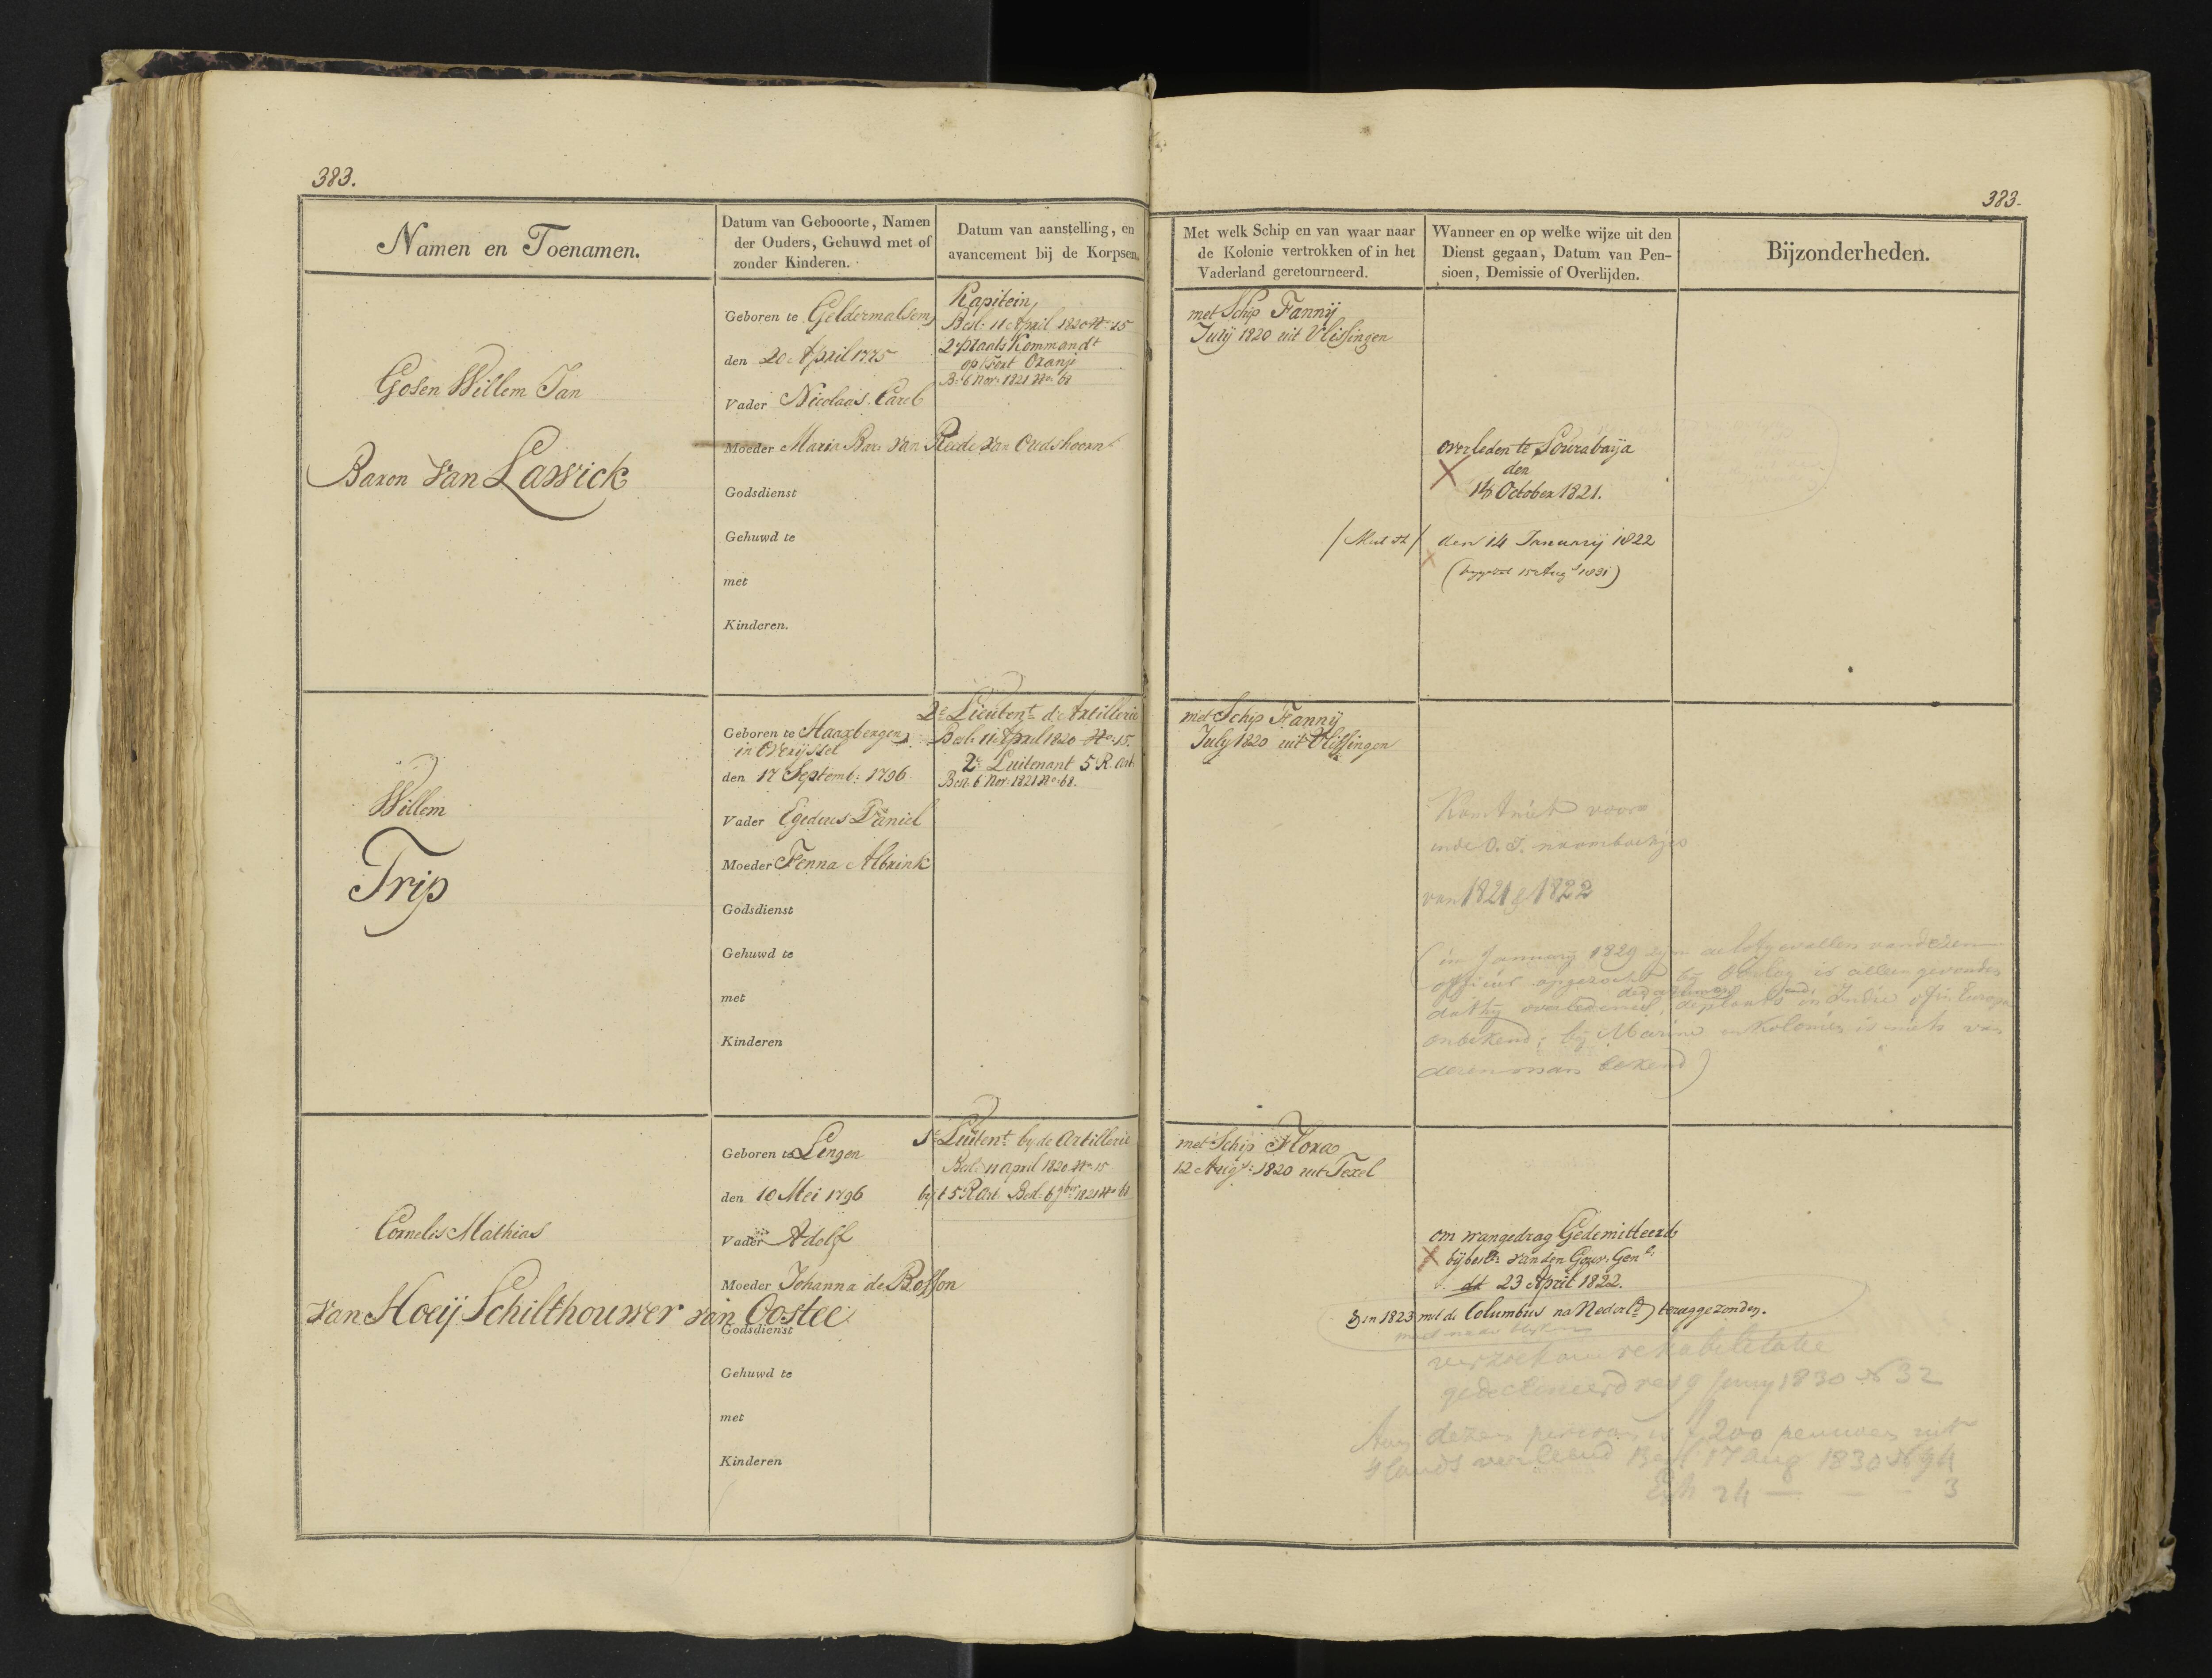 383.
383.
Namen en Toenamen.
Datum van Gebooorte, Namen
der Ouders, Gehuwd met of
zonder Kinderen.
Datum van aanstelling, en
avancement bij de Korpsen.
Met welk Schip en van waar naar
de Kolonie vertrokken of in het
Vaderland geretourneerd.
Wanneer en op welke wijze uit den
Dienst gegaan, Datum van Pen-
sioen, Demissie of Overlijden.
Bijzonderheden.
Gosen Willem Jan
Baron van Lawick
Geboren te Geldermalsem
den 20 April 1775
Vader Nicolaas Carel
Moeder Maria Bar: van Reede van Oudshoorn
Godsdienst
Gehuwd te
met
Kinderen.
Kapitein,
Besl: 11 April 1820 No: 15
2e Plaats Kommandt
op Fort Oranje
B: 6 Nov: 1821 No: 68
met Schip Fannij
July 1820 uit Vlissingen
overleden te Sourabaija
den
14 October 1821.
den 14 Januarij 1822
15 Aug
Willem
Trip
Geboren te Haaxbergen
in Overijssel
den 17 Septemb: 1796
Vader Egedius Daniel
Moeder Fenna Albrink
Godsdienst
Gehuwd te
met
Kinderen
2e Lieutent d'Artillerie
Besl: 11 April 1820 No: 15.
2e Luitenant 5 R. Art:
Besl: 6 Nov: 1821 No: 68.
met Schip Fannij
July 1820 uit Vlissingen
Komt niet voor
in de O. I. naamboekjes
van 1821 & 1822
(in January 1829 zijn de lotgevallen van dezen
officier opgezocht bij Oorlog is alleen gevonden
dat hij overleden is, de plaats in Indie of in Europa
onbekend; bij Marine en Kolonien is niets van
dezen man bekend)
Cornelis Mathias
van Hoeij Schilthouwer van Oostee
Geboren te Lingen
den 10 Mei 1796
Vader Adolf
Moeder Johanna de Rosson
Godsdienst
Gehuwd te
met
Kinderen
1e Luitent by de Artillerie
Besl: 11 april 1820 No 15
by t 5 R Art. Besl: 6 9ber 1821 No 68
met Schip Flora
12 Augs: 1820 uit Texel
om wangedrag Gedemitteerd
bij beslt: van den Gouv: Genl:
dd 23 April 1822.
& in 1823 met de Columbus na Nederld teruggezonden.
verzoek om rehabilitatie
gedeclineerd res 9 Juny 1830 No 32
Aan dezen persoon is f 200 pensioen uit
s lands verleend Besl 17 Aug 1830 No 94
24 — — — 3